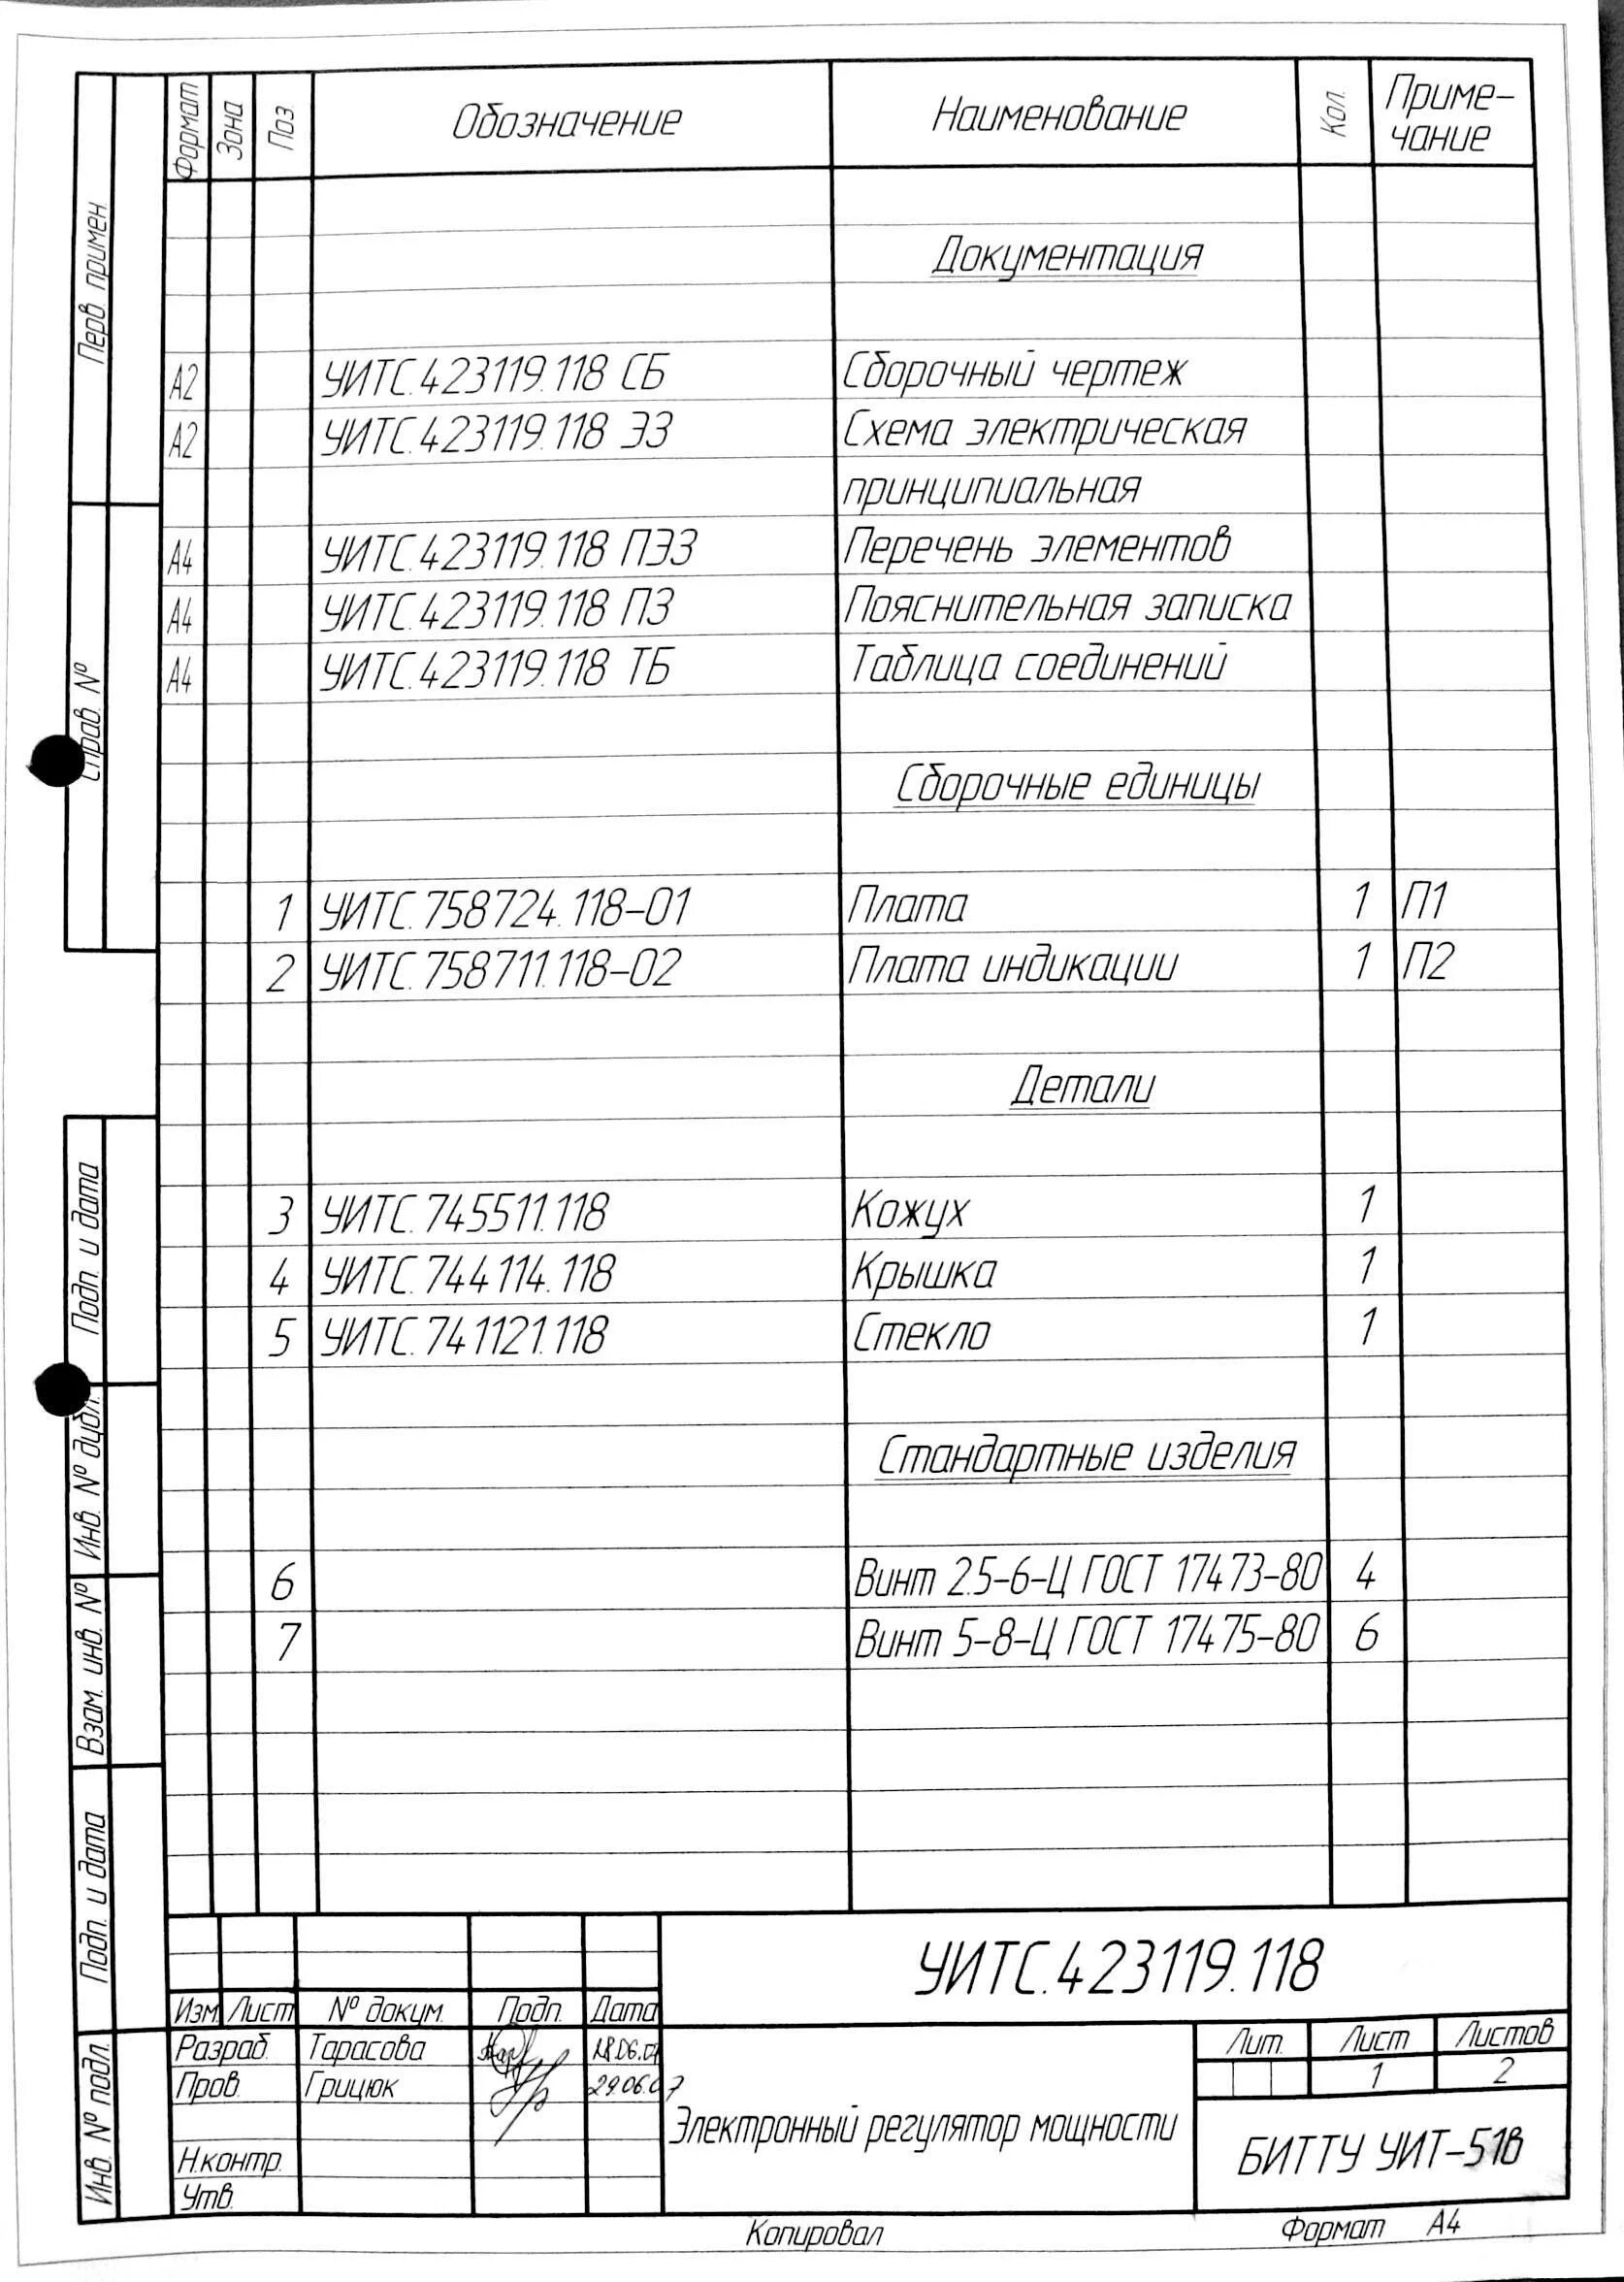 Формат Зона Поз. Обозначение Наименование Кол. Приме-
чание
Документация
А2 УИТС.423119.118 СБ Сборочный чертеж
А2 УИТС.423119.118 ЭЗ Схема электрическая
принципиальная
А4 УИТС.423119.118 ПЭЗ Перечень элементов
А4 УИТС.423119.118 ПЗ Пояснительная записка
А4 УИТС.423119.118 ТБ Таблица соединений
Сборочные единицы
1 УИТС.758724.118-01 Плата 1 П1
2 УИТС.758711.118-02 Плата индикации 1 П2
Детали
3 УИТС.745511.118 Кожух 1
4 УИТС.744114.118 Крышка 1
5 УИТС.741121.118 Стекло 1
Стандартные изделия
6 Винт 2.5-6-Ц ГОСТ 17473-80 4
7 Винт 5-8-Ц ГОСТ 17475-80 6
Перв. примен.
Справ. №
Подп. и дата
Инв. № дубл.
Взам. инв. №
Подп. и дата
Инв. № подл.
УИТС.423119.118
Изм. Лист № докум. Подп. Дата
Разраб. Тарасова
Пров. Грицюк 29.06.07
Н.контр.
Утв.
Электронный регулятор мощности
Лит. Лист Листов
1 2
БИТТУ УИТ-51в
Копировал Формат А4